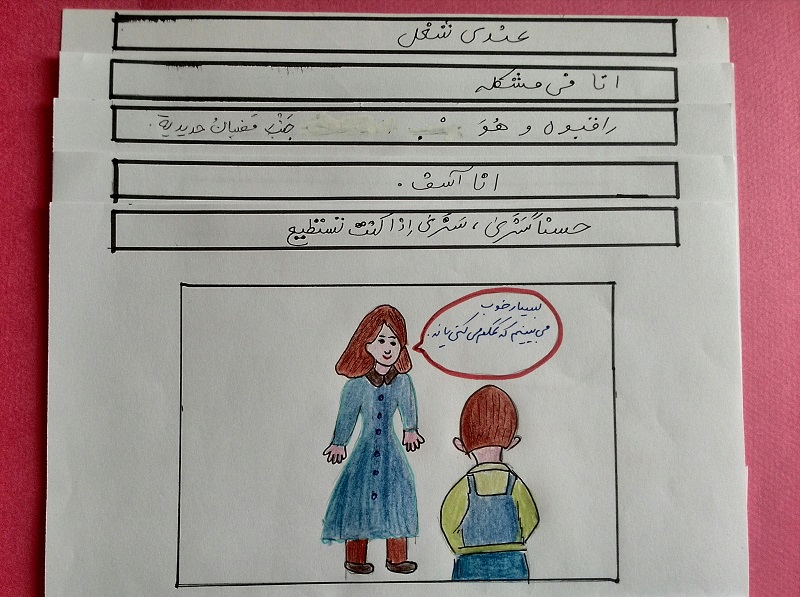 عندی شغل
انا فی مشکله
راقبوه و هُوَ جَنْبَ قضبان حدیدیة.
انا آسف.
حسناً سَنَری، سَنَری إذا کنت تستطیع
بسیار خوب
می‌بینم که کمکم می‌کنی یا نه.